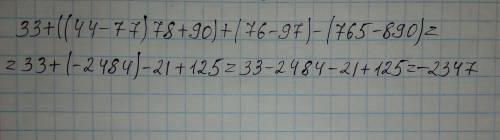 33+((44-77)78+90)+(76-97)-(765-890)=
=33+(-2484)-21+125=33-2484-21+125=-2347